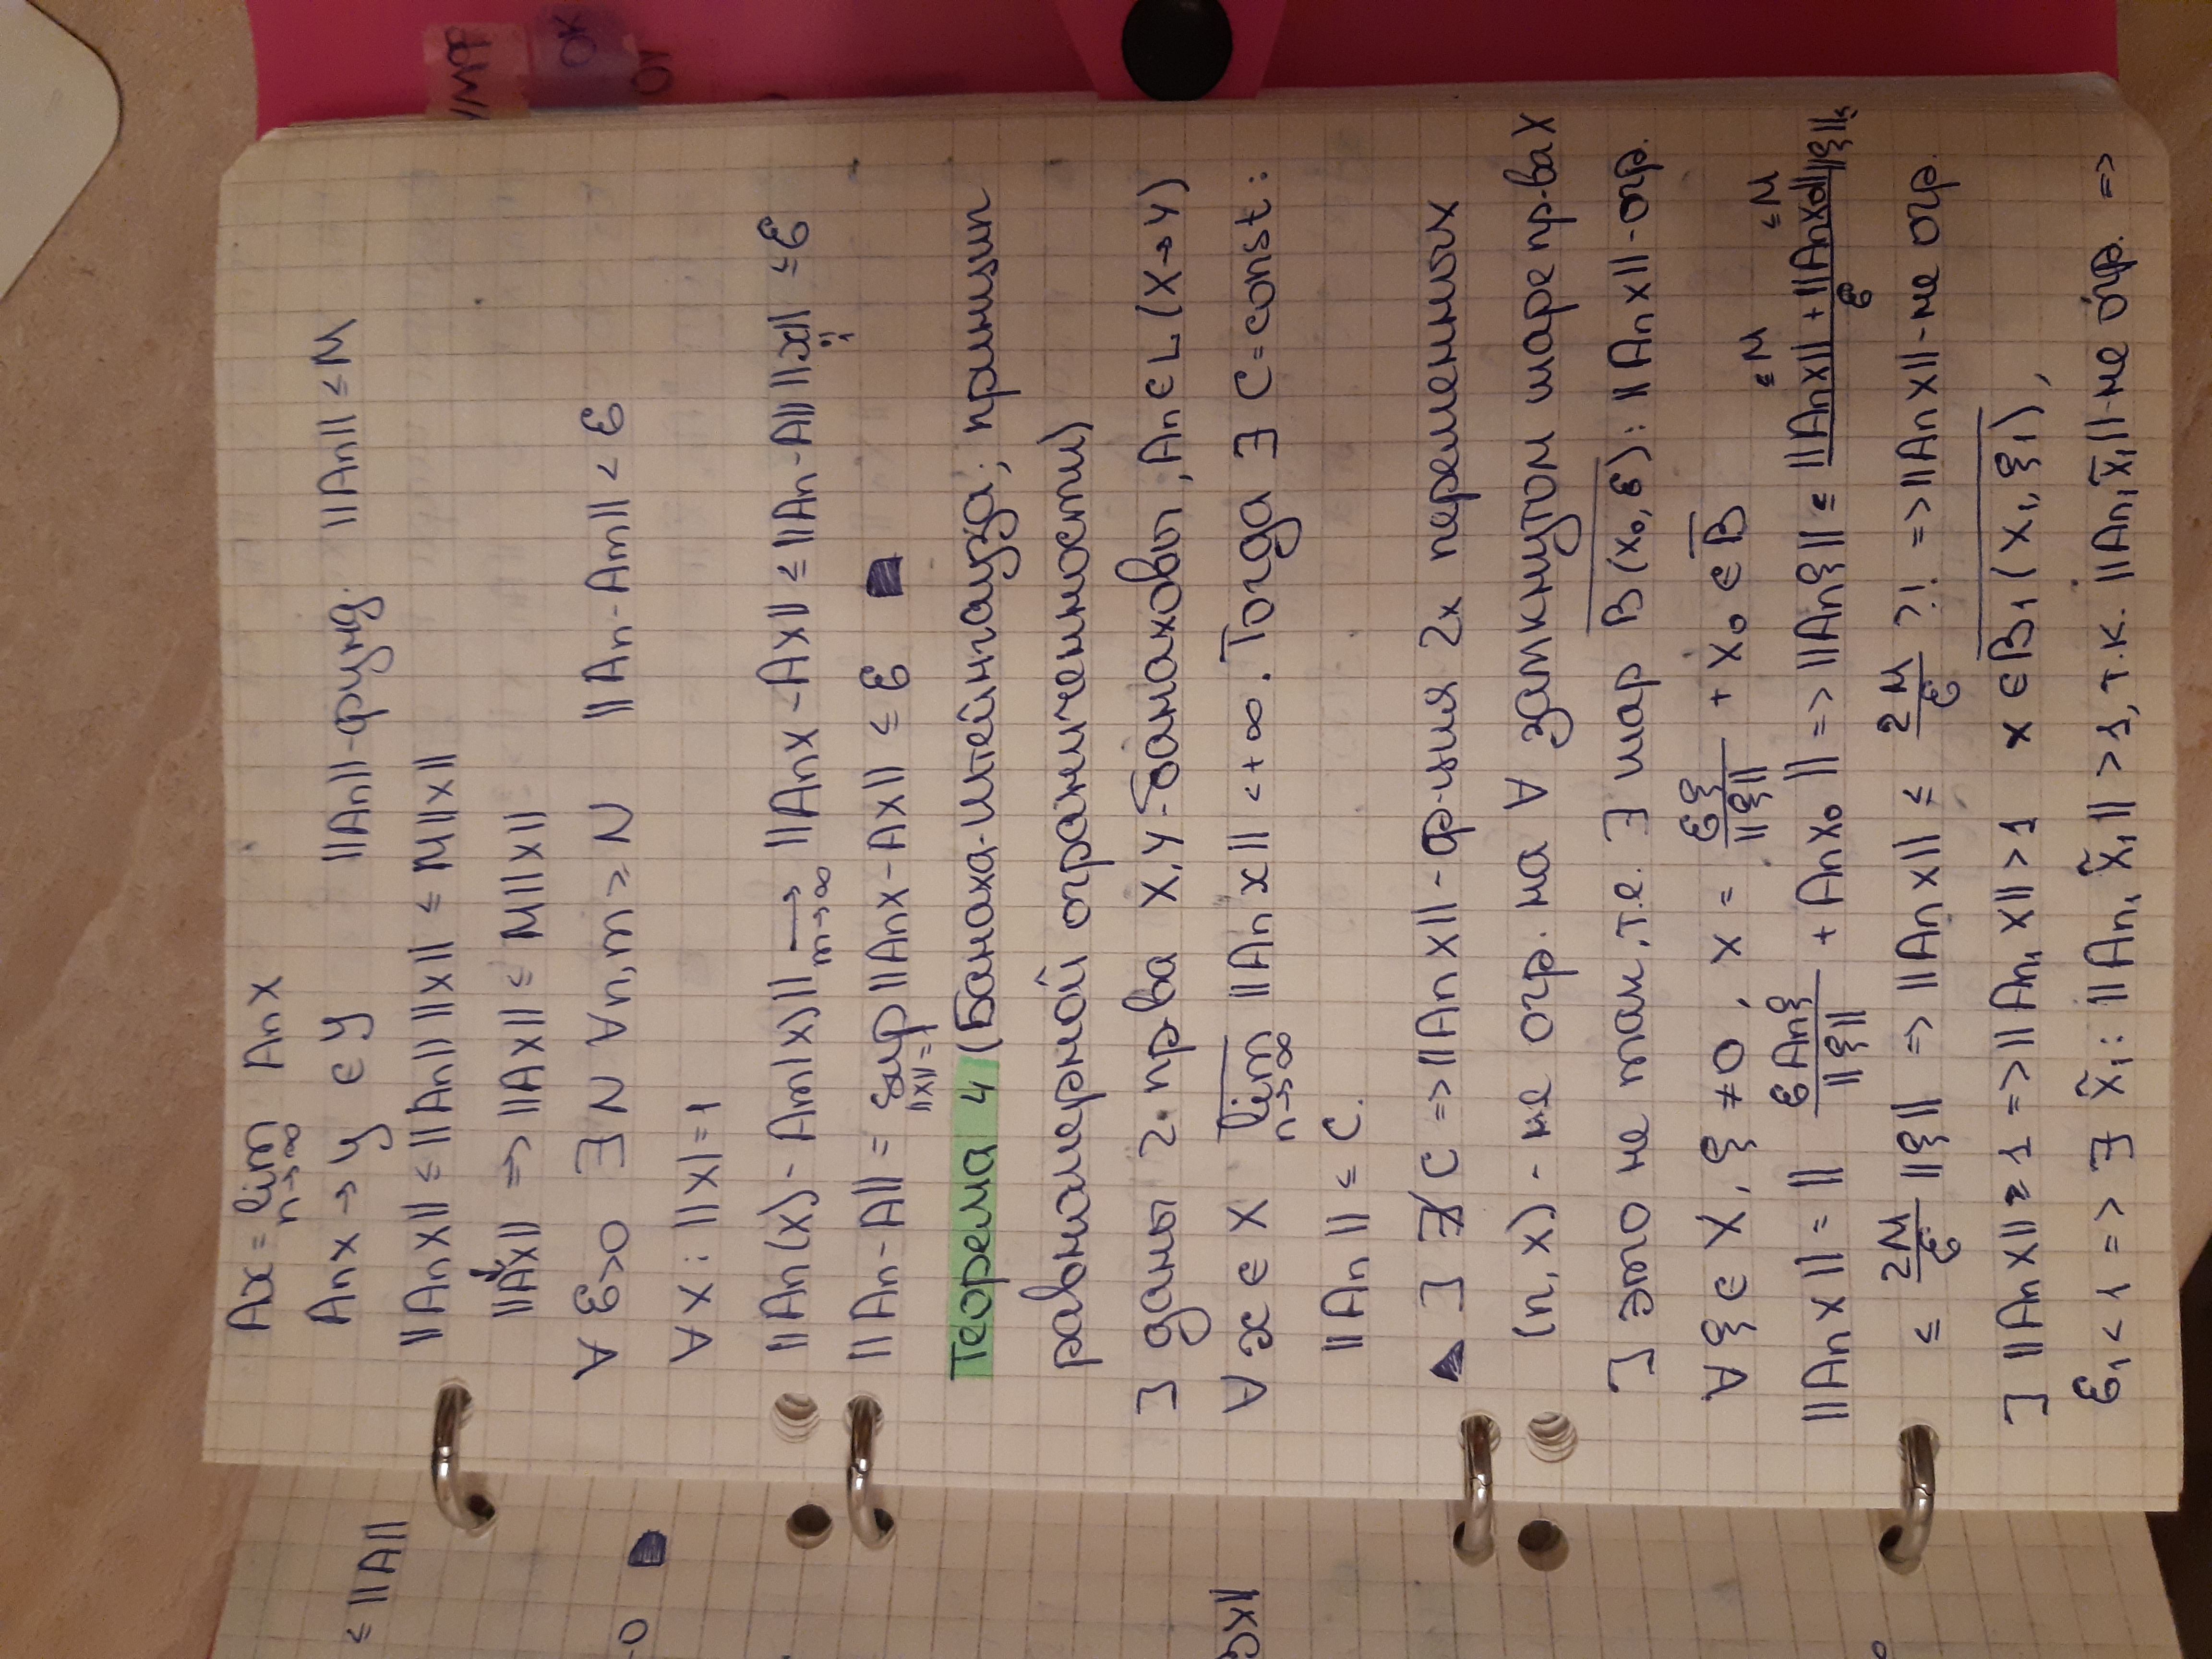 Ax = lim n→∞ An x
An x → y ∈ Y ||An||-фунд. ||An|| ≤ M
||An x|| ≤ ||An|| ||x|| ≤ M ||x||
||Ax|| => ||Ax|| ≤ M ||x||
∀ ε>0 ∃ N ∀ n,m > N ||An - Am|| < ε
∀ x : ||x|| = 1
||An(x) - Am(x)|| → m→∞ ||An x - Ax|| ≤ ||An - A|| ||x|| ≤ ε
"1
||An - A|| = sup ||x||=1 ||An x - Ax|| ≤ ε
Теорема 4 (Банаха-Штейнгауза; принцип
равномерной ограниченности)
] даны 2 пр-ва X,Y-банаховы, An ∈ L (X→Y)
∀ x ∈ X lim n→∞ ||An x|| < +∞. Тогда ∃ C = const :
||An|| ≤ C.
] ∄ C => ||An x|| - ф-ция 2х переменных
(n, x) - не огр. на ∀ замкнутом шаре пр-ва X
] это не так, т.е. ∃ шар B(x0, ε) : ||An x||-огр.
∀ ξ ∈ X, ξ ≠ 0, x = εξ / ||ξ|| + x0 ∈ B
≤M ≤M
||An x|| = || ε An ξ / ||ξ|| + An x0 || => ||An ξ|| ≤ ||An x|| + ||An x0|| / ε ||ξ|| ≤
≤ 2M / ε ||ξ|| => ||An x|| ≤ 2M / ε ?! => ||An x||-не огр.
] ||An x|| ≥ 1 => ||An1 x|| > 1 x ∈ B1 (x1, ξ1),
ε1 < 1 => ∃ x̃1 : ||An1 x̃1|| > 1, т.к. ||An1 x̃1||-не огр. =>
≤ ||A||